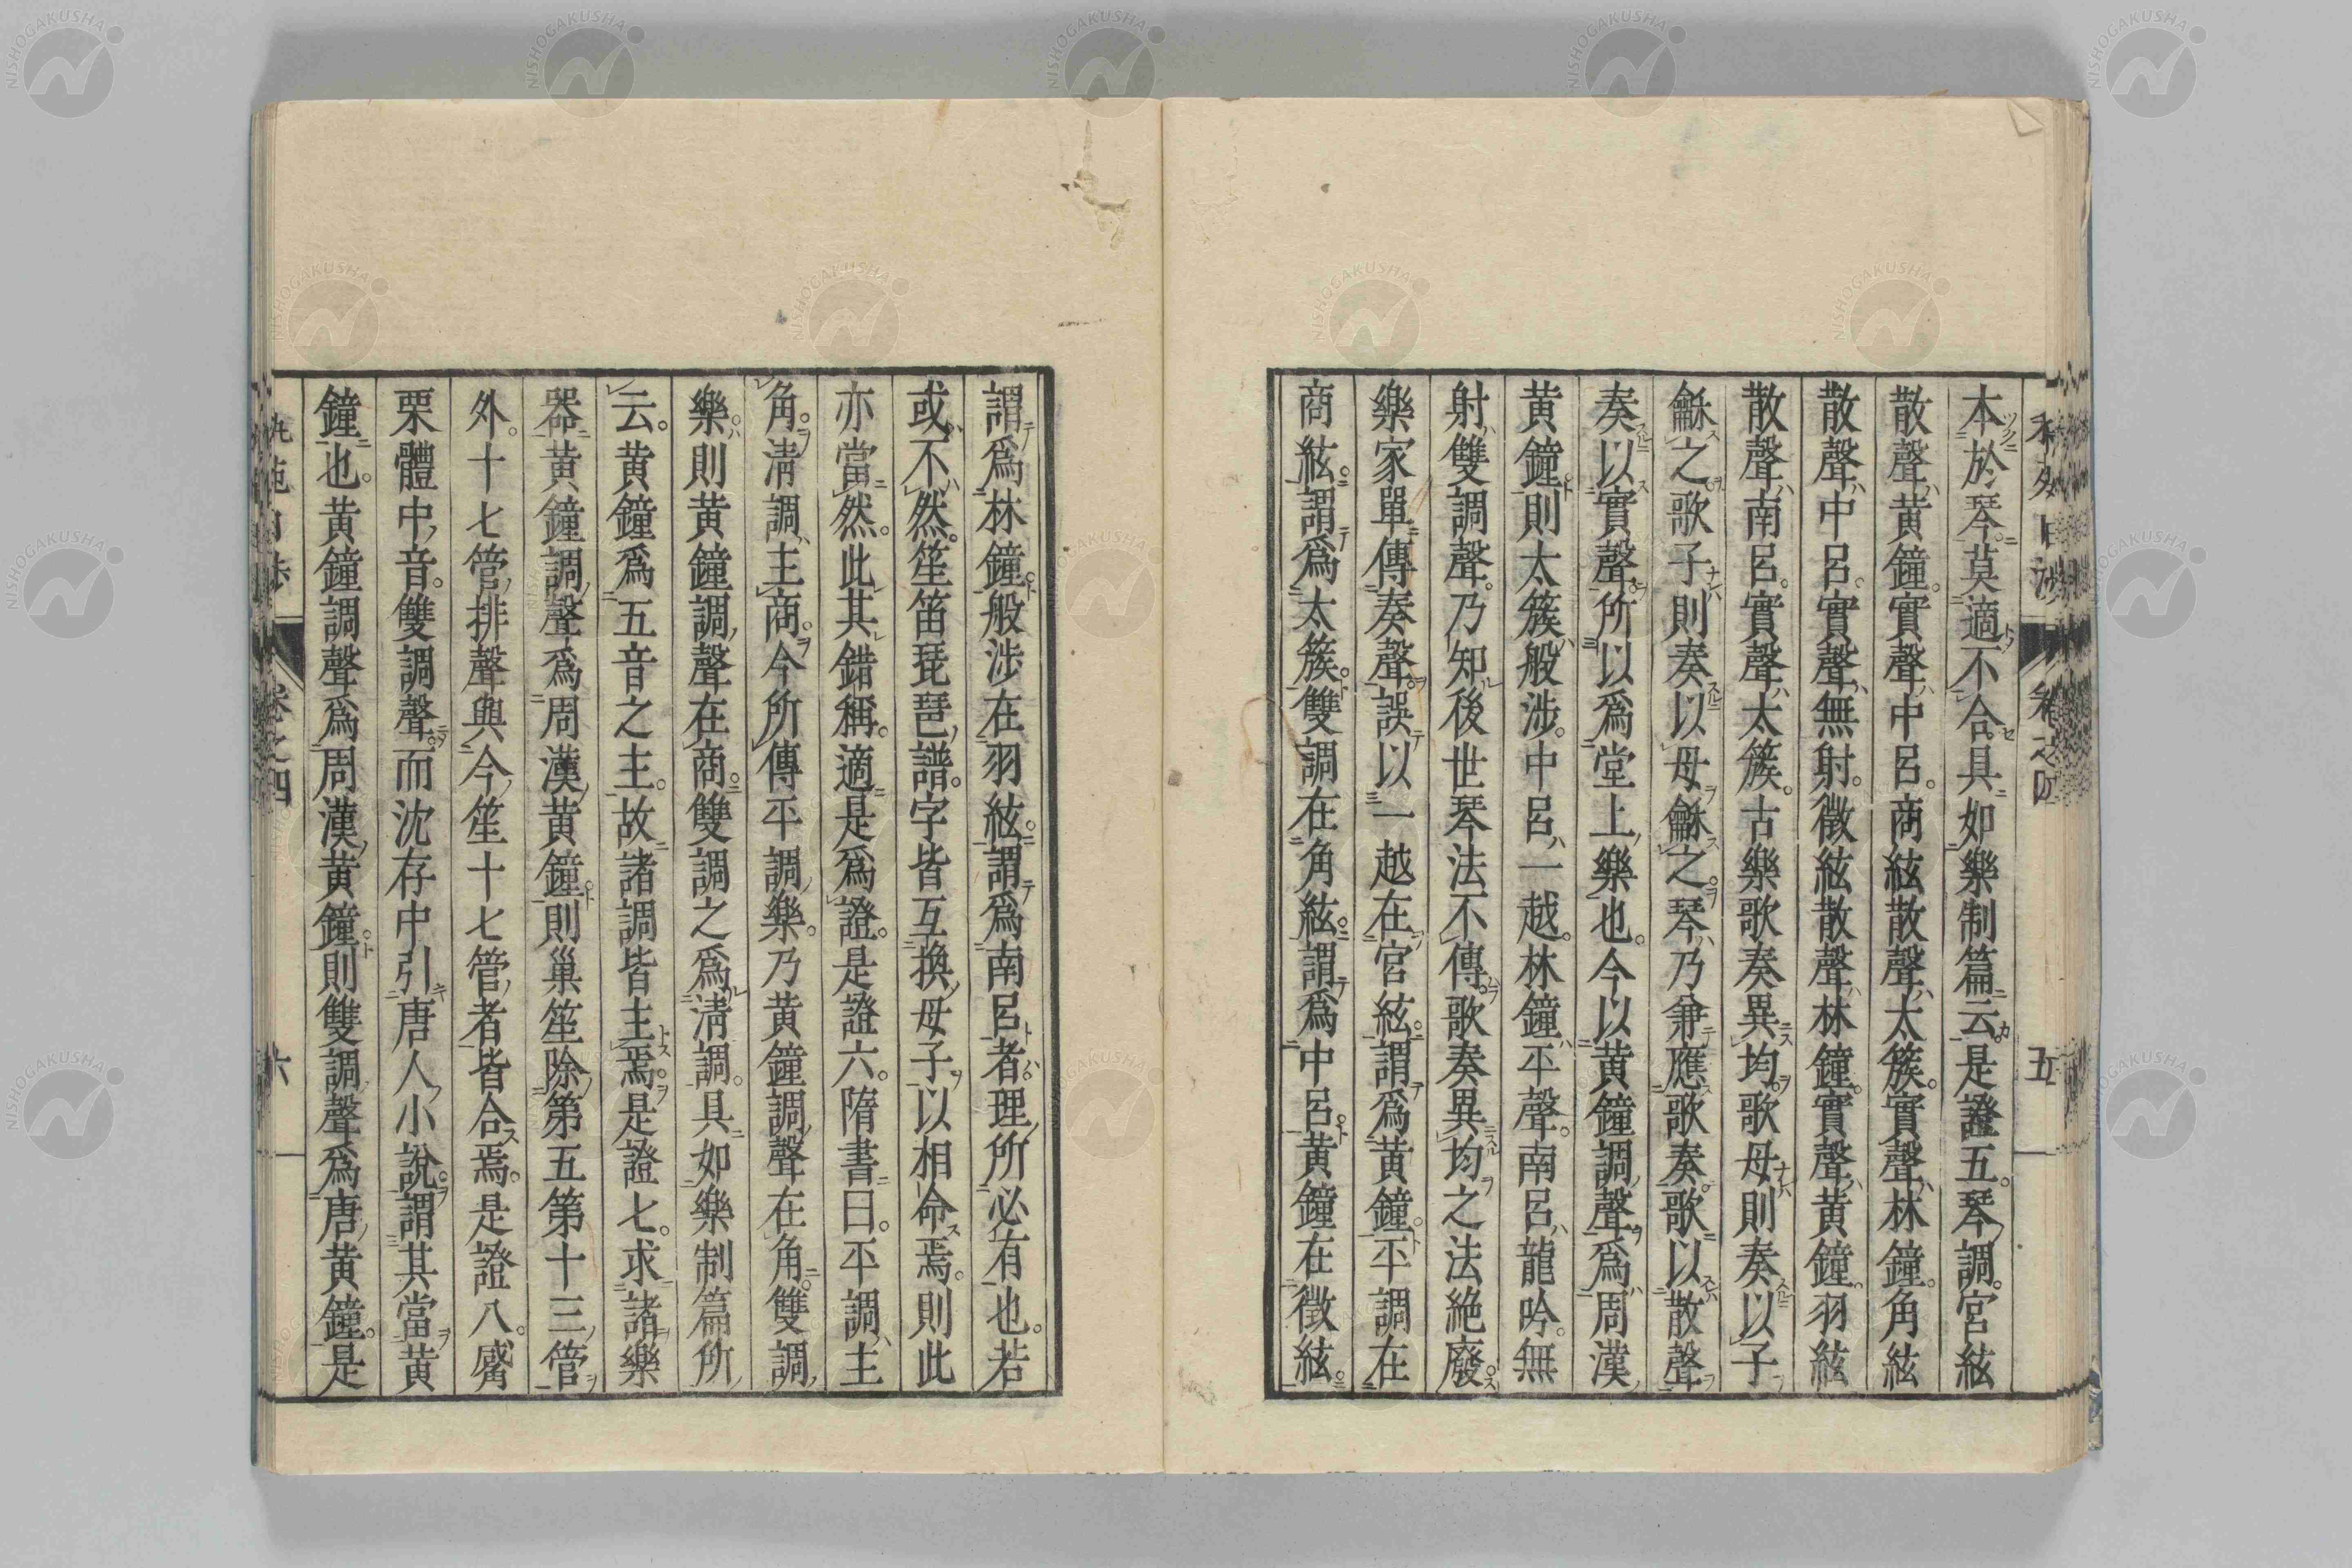 本於琴莫適不合具如樂制篇云是證五琴調宮絃
散聲黃鐘實聲中呂商絃散聲太簇實聲林鐘角絃
散聲中呂實聲無射徵絃散聲林鐘實聲黃鐘羽絃
散聲南呂實聲太簇古樂歌奏異均歌母則奏以子
龢之歌子則奏以母龢之琴乃兼應歌奏歌以散聲
奏以實聲所以爲堂上樂也今以黃鐘調聲爲周漢
黃鐘則太簇般涉中呂一越林鐘平聲南呂龍吟無
射雙調聲乃知後世琴法不傳歌奏異均之法絶廢
樂家單傳奏聲誤以一越在宮絃謂爲黃鐘平調在
商絃謂爲太簇雙調在角絃謂爲中呂黃鐘在徵絃
卷之四
五
謂爲林鐘般涉在羽絃謂爲南呂者理所必有也若
或不然笙笛琵琶譜字皆互換母子以相命焉則此
亦當然此其錯稱適是爲證是證六隋書曰平調主
角清調主商今所傳平調樂乃黃鐘調聲在角雙調
樂則黃鐘調聲在商雙調之爲淸調具如樂制篇所
云黃鐘爲五音之主故諸調皆主焉是證七求諸樂
器黃鐘調聲爲周漢黃鐘則巢笙除第五第十三管
外十七管排聲與今笙十七管者皆合焉是證八觱
栗體中音雙調聲而沈存中引唐人小說謂其當黃
鐘也黃鐘調聲爲周漢黃鐘則雙調聲爲唐黃鐘是
卷之四
六